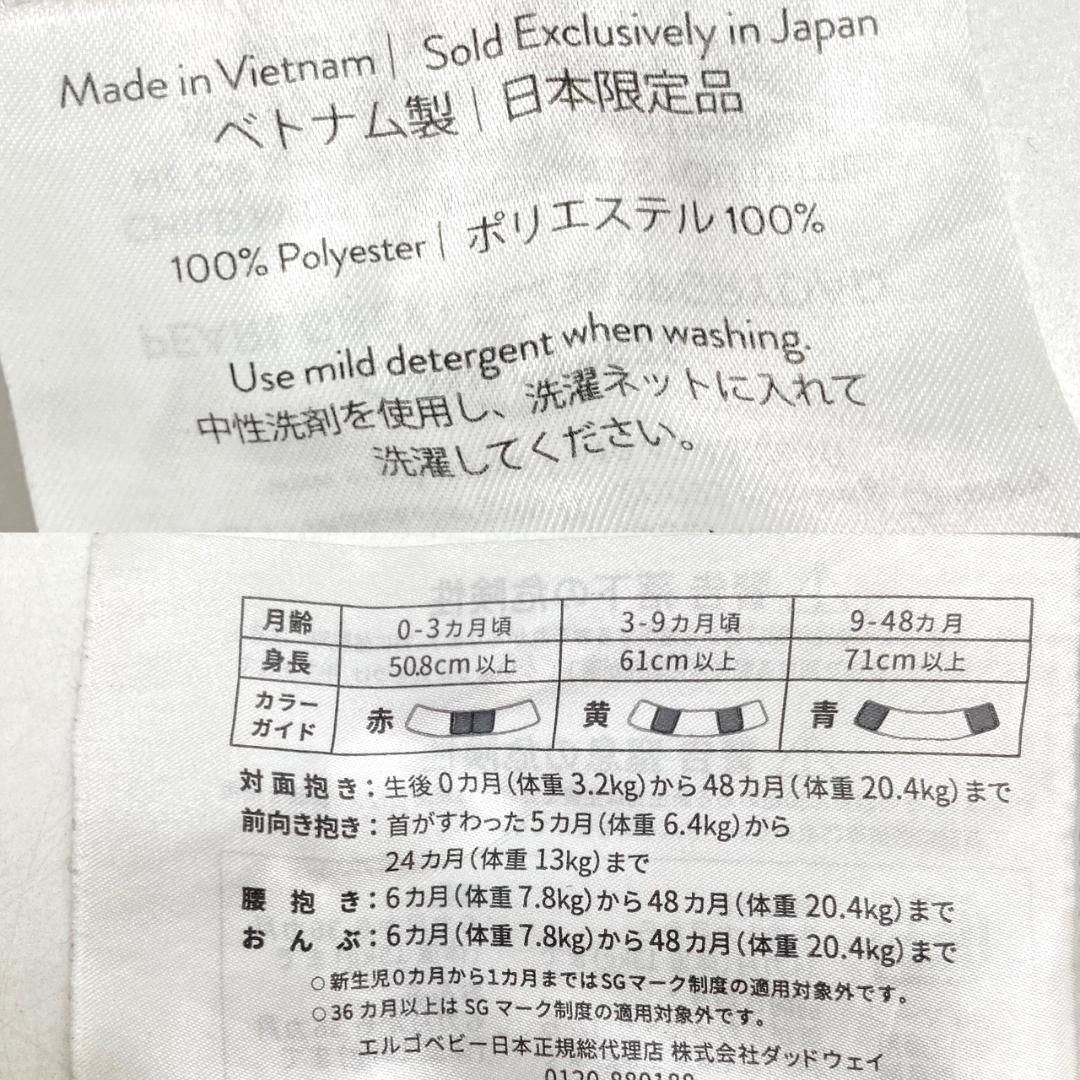 Made in Vietnam | Sold Exclusively in Japan
ベトナム製 | 日本限定品
100% Polyester | ポリエステル 100%
Use mild detergent when washing.
中性洗剤を使用し、洗濯ネットに入れて
洗濯してください。
月齢 0-3カ月頃 3-9カ月頃 9-48カ月
身長 50.8cm以上 61cm以上 71cm以上
カラーガイド 赤 黄 青
対面抱き：生後0カ月（体重3.2kg）から48カ月（体重20.4kg）まで
前向き抱き：首がすわった5カ月（体重6.4kg）から
24カ月（体重13kg）まで
腰抱き：6カ月（体重7.8kg）から48カ月（体重20.4kg）まで
おんぶ：6カ月（体重7.8kg）から48カ月（体重20.4kg）まで
○新生児0カ月から1カ月まではSGマーク制度の適用対象外です。
○36カ月以上はSGマーク制度の適用対象外です。
エルゴベビー日本正規総代理店 株式会社ダッドウェイ